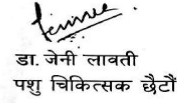 डा. जेनी लावती
पशु चिकित्सक छैटौं